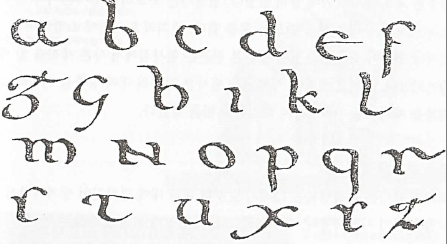 a b c d e f
ᵹ G h ı k l
m N o p q r
r τ u x y z